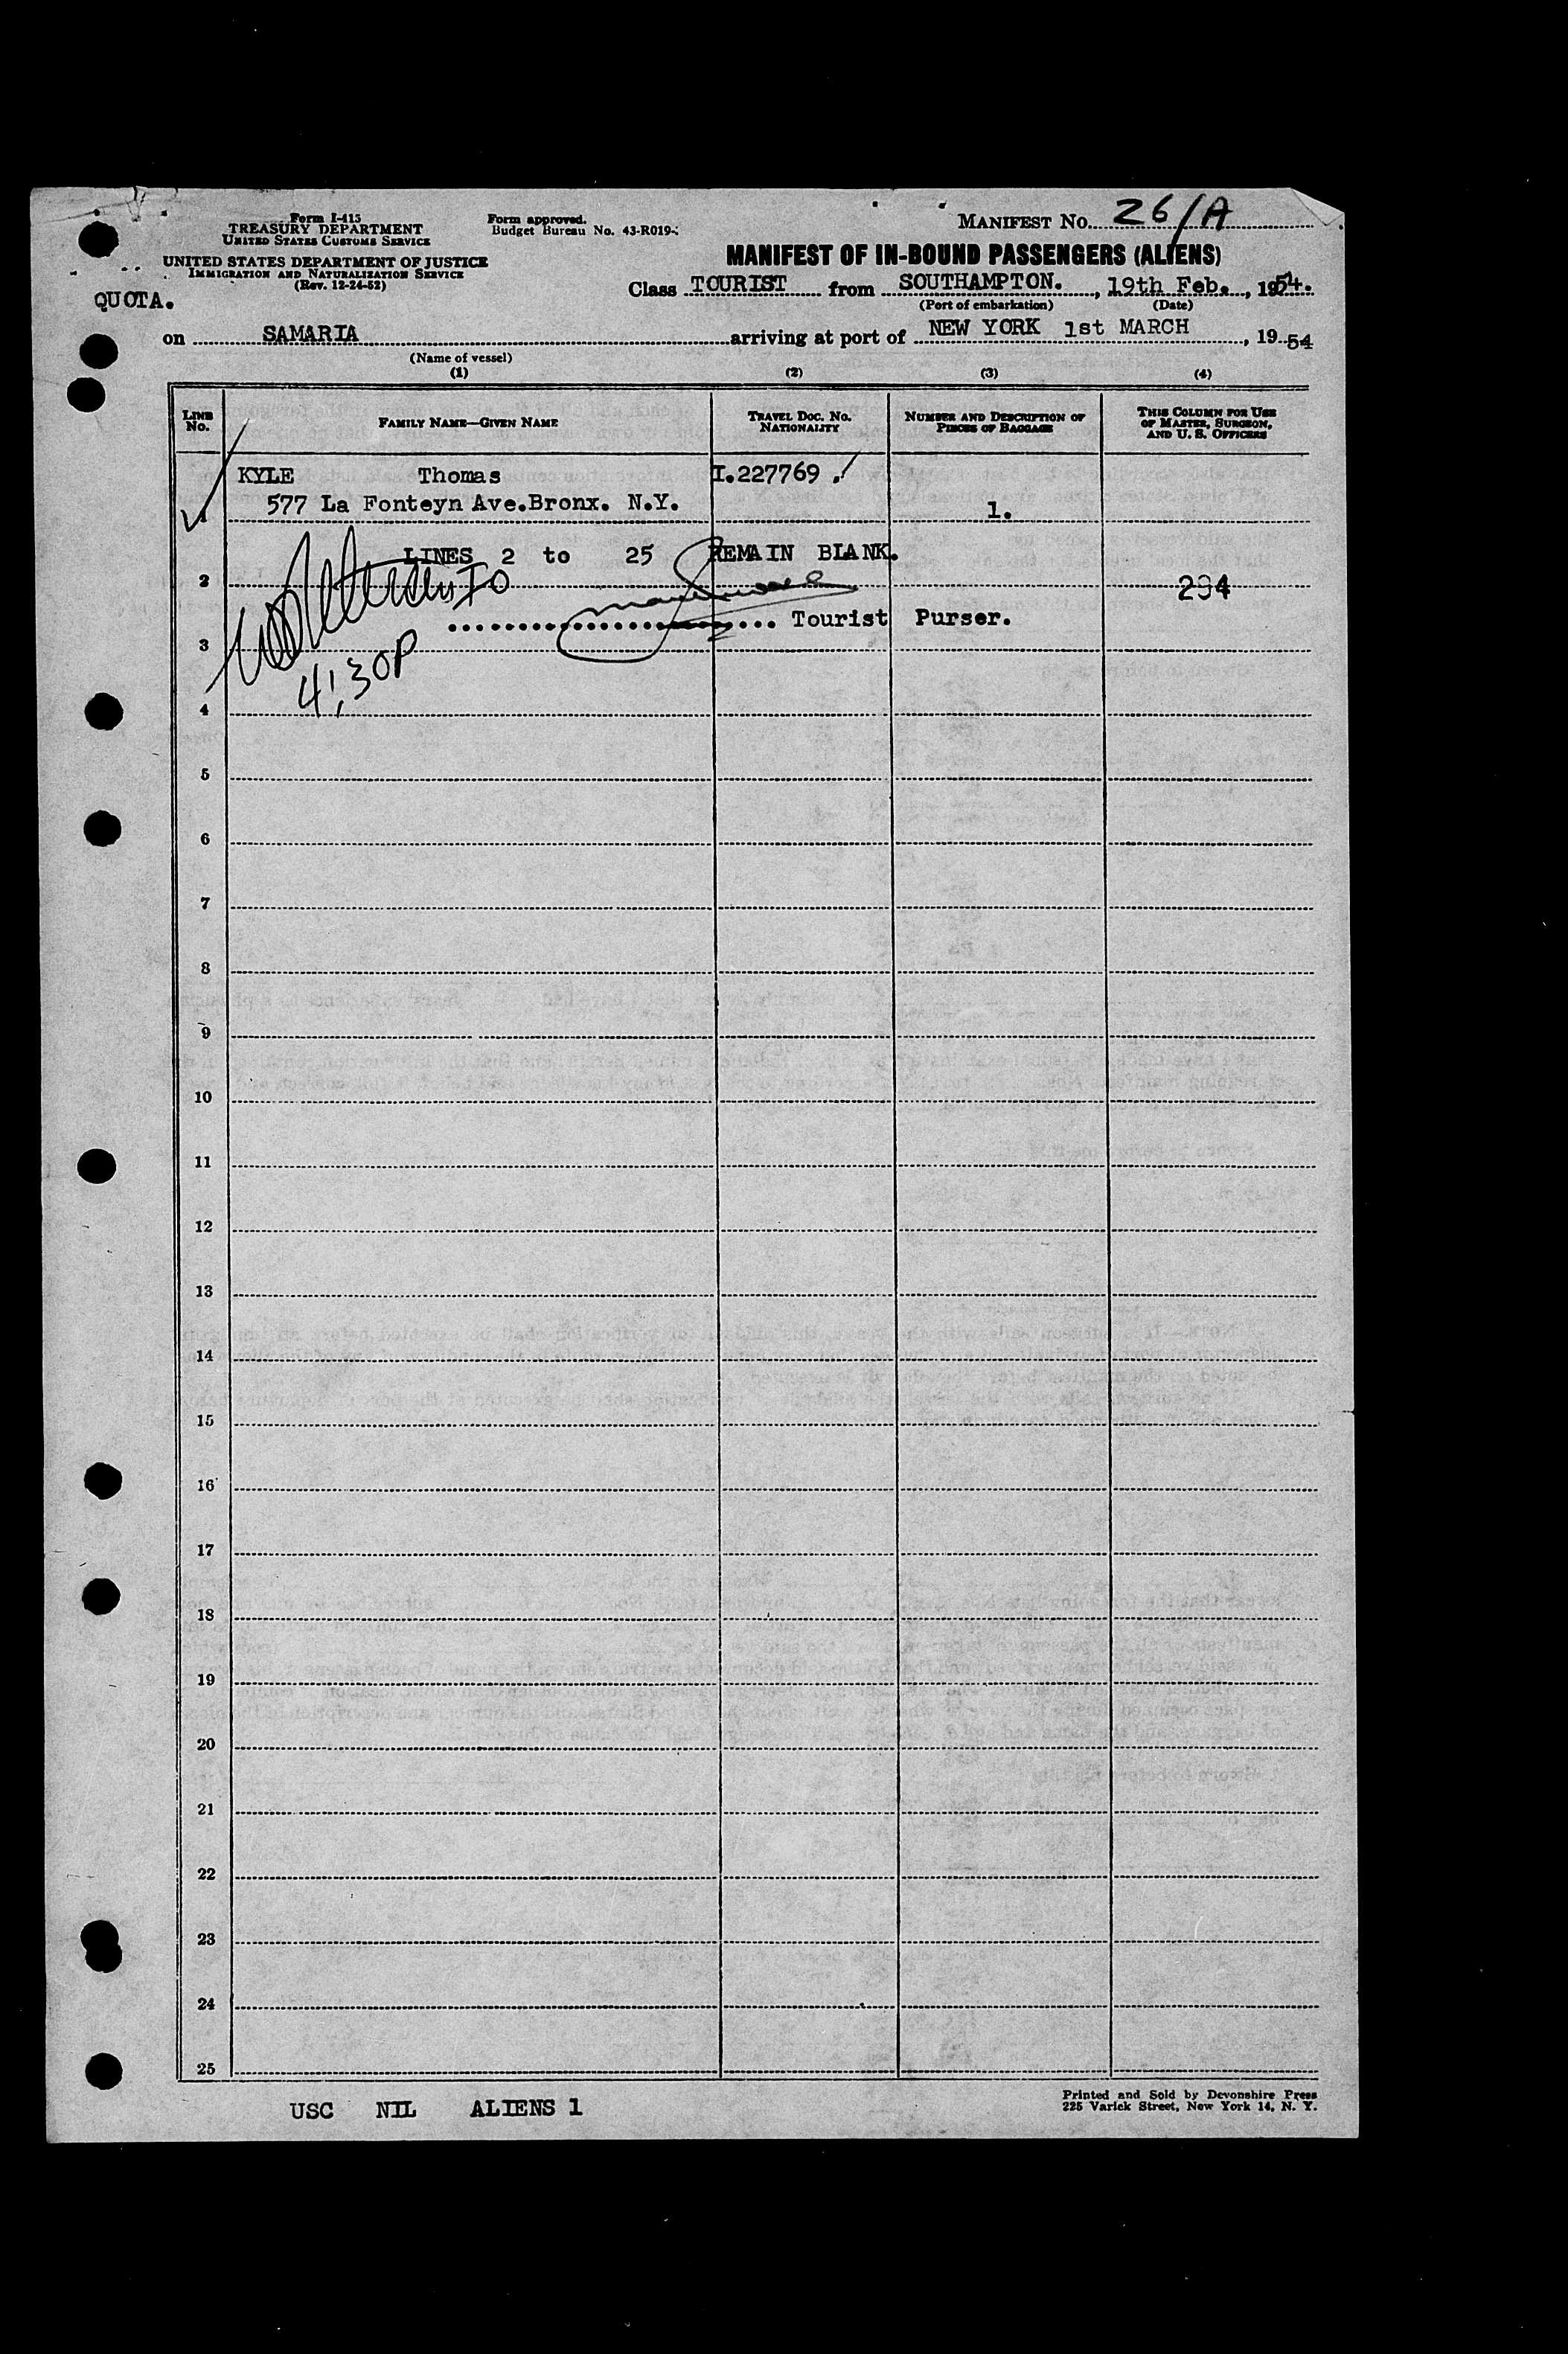 Form I-415
TREASURY DEPARTMENT
UNITED STATES CUSTOMS SERVICE
UNITED STATES DEPARTMENT OF JUSTICE
IMMIGRATION AND NATURALIZATION SERVICE
(Rev. 12-24-52)
Form approved.
Budget Bureau No. 43-R019-
MANIFEST NO. 26/A
MANIFEST OF IN-BOUND PASSENGERS (ALIENS)
QUOTA.
Class TOURIST from SOUTHAMPTON., 19th Feb., 1954.
(Port of embarkation) (Date)
on SAMARIA arriving at port of NEW YORK 1st MARCH, 1954
(Name of vessel)
(1) (2) (3) (4)
LINE NO.
FAMILY NAME—GIVEN NAME
TRAVEL DOC. NO.
NATIONALITY
NUMBER AND DESCRIPTION OF
PIECES OF BAGGAGE
THIS COLUMN FOR USE
OF MASTER, SURGEON,
AND U. S. OFFICERS
KYLE Thomas I.227769 .
1 577 La Fonteyn Ave.Bronx. N.Y. 1.
LINES 2 to 25 REMAIN BLANK.
2 294
Tourist Purser.
3
4:30P
4
5
6
7
8
9
10
11
12
13
14
15
16
17
18
19
20
21
22
23
24
25
USC NIL ALIENS 1
Printed and Sold by Devonshire Press
225 Varick Street, New York 14, N. Y.